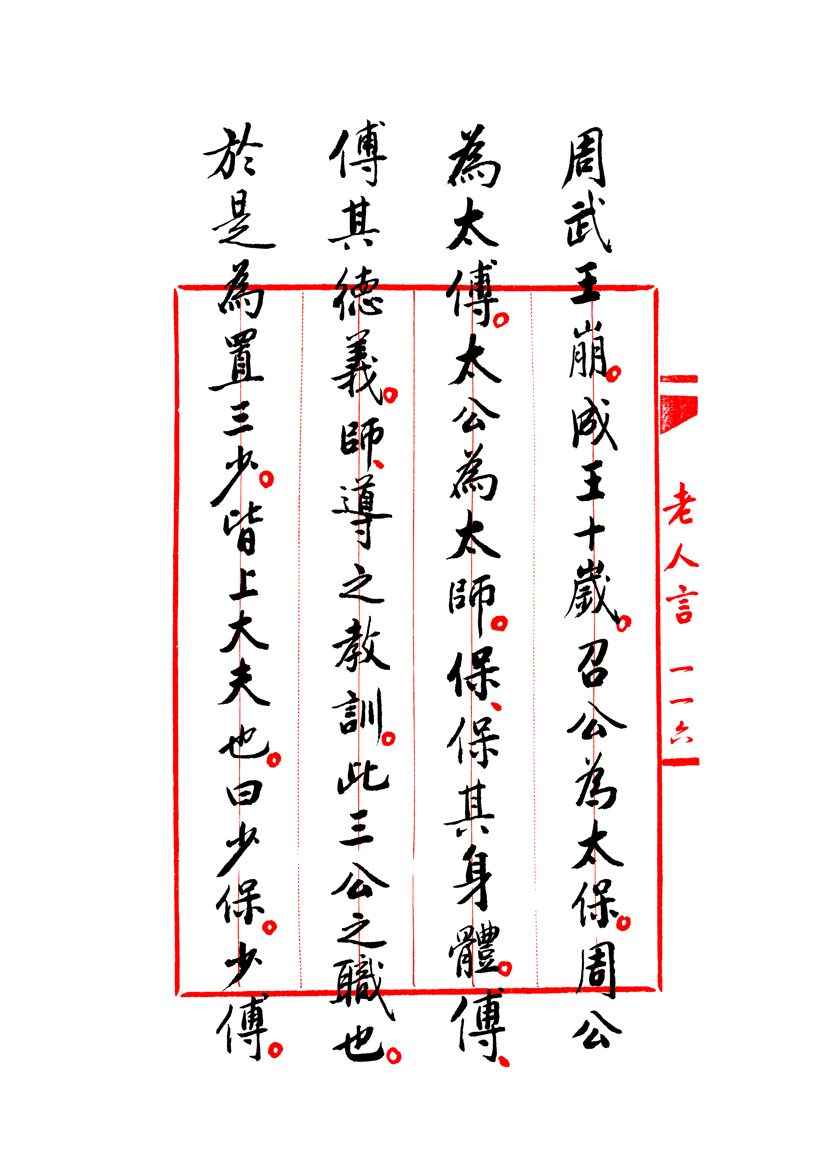 老人言 一一六
周武王崩。成王十歲。召公為太保。周公
為太傅。太公為太師。保、保其身體。傅、
傅其德義。師、導之教訓。此三公之職也。
於是為置三少。皆上大夫也。曰少保。少傅。